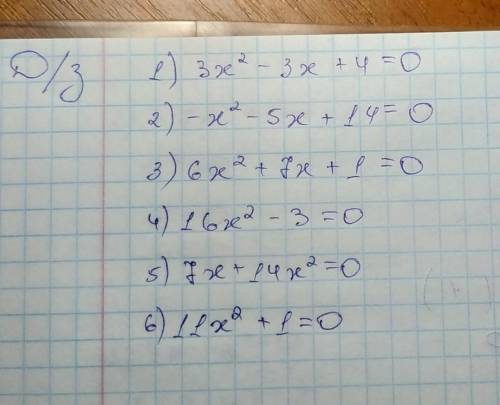 Д/з
1) 3x² - 3x + 4 = 0
2) -x² - 5x + 14 = 0
3) 6x² + 7x + 1 = 0
4) 16x² - 3 = 0
5) 7x + 14x² = 0
6) 11x² + 1 = 0